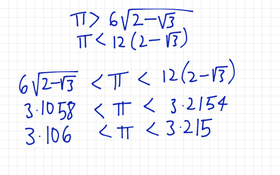 π > 6√(2-√3)
π < 12(2-√3)
6√(2-√3) < π < 12(2-√3)
3·1058 < π < 3·2154
3·106 < π < 3·215